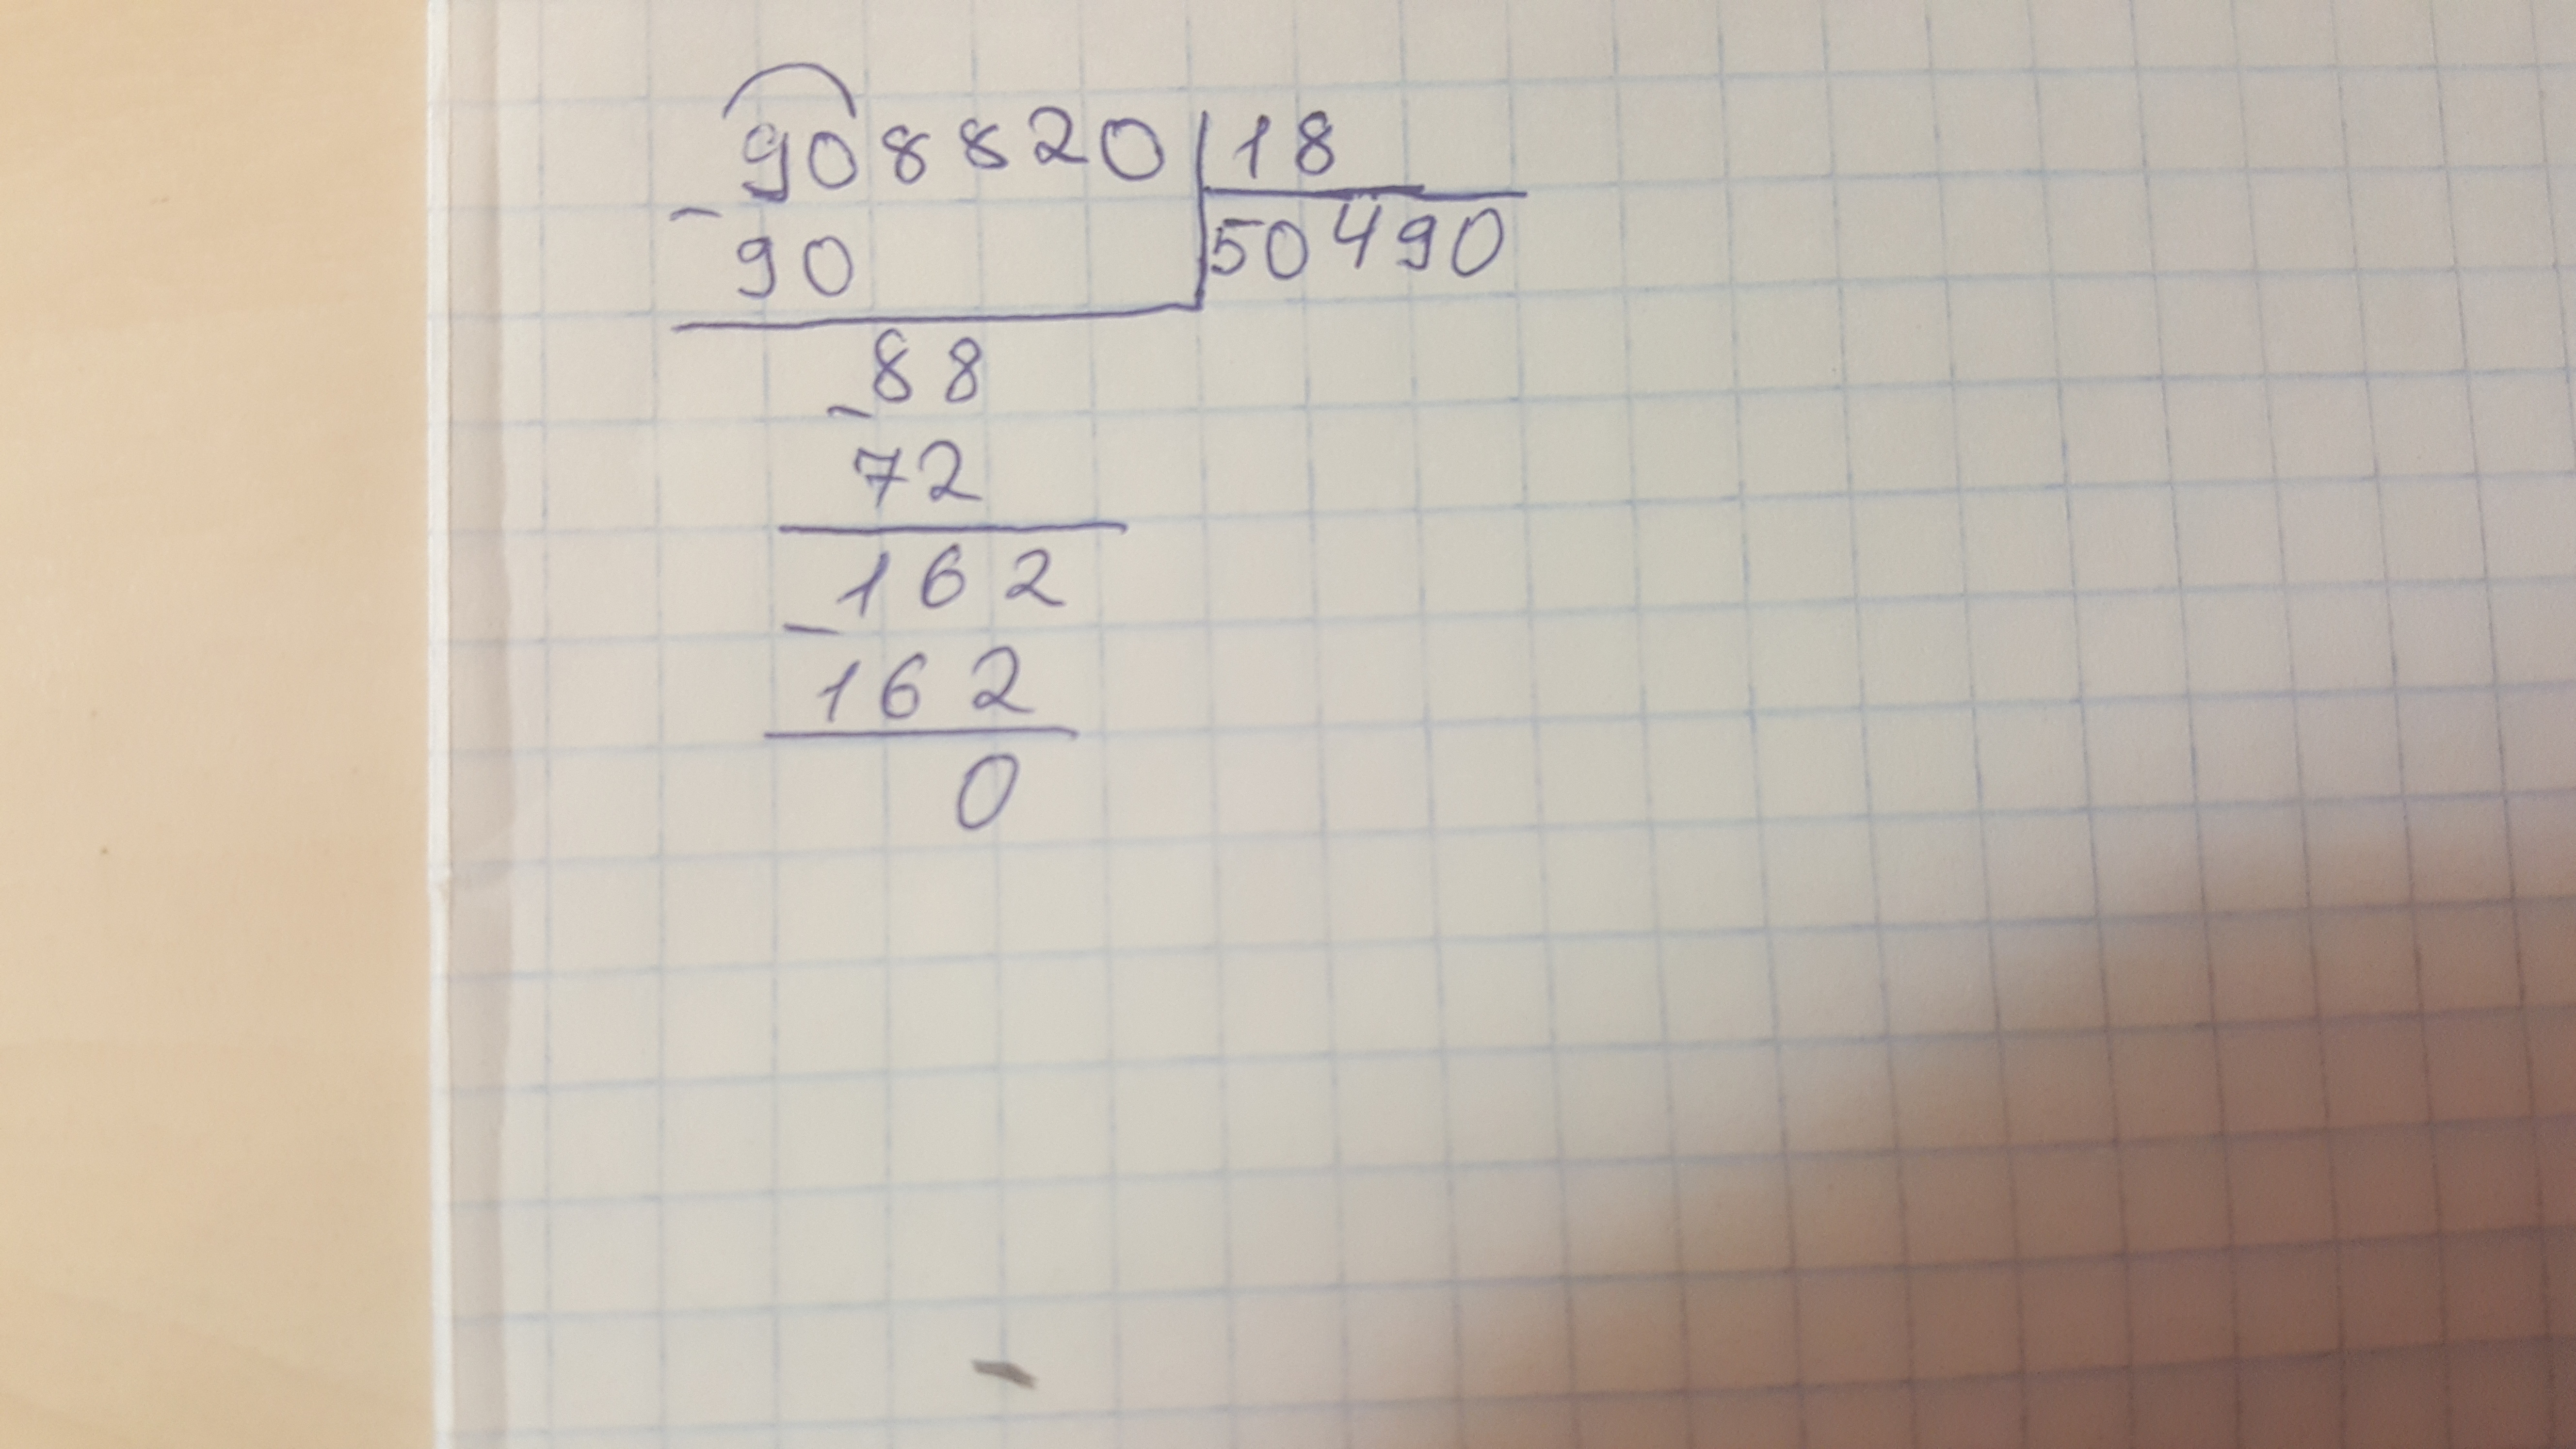 908820 18
- 90 50490
- 88
72
- 162
162
0